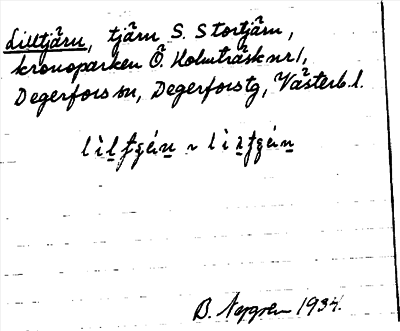 Lilltjärn, tjärn S. Stortjärn,
kronoparken Ö. Holmträsk nr 1,
Degerfors sn, Degerfors tg, Västerb. l.
B. Nygren 1934.